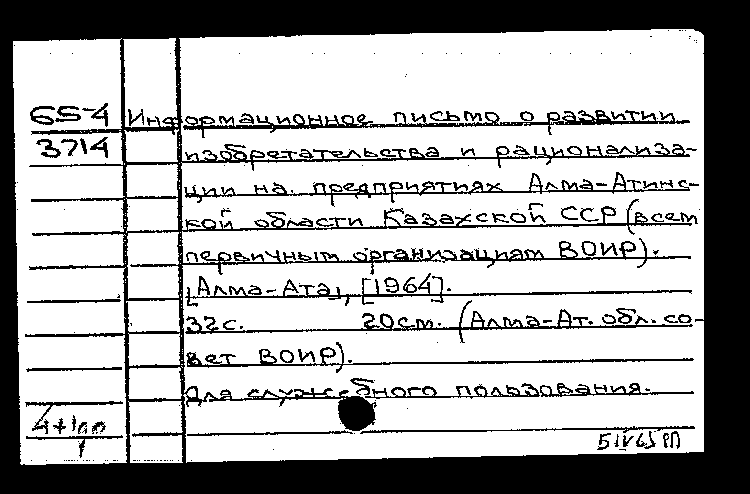 65-4 Информационное письмо о развитии
3714 изобретательства и рационализа-
ции на предприятиях Алма-Атинс-
кой области Казахской ССР (всем
первичным организациям ВОИР).
[Алма-Ата], [1964].
32с. 20см. (Алма-Ат. обл. со-
вет ВОИР).
Для служебного пользования.